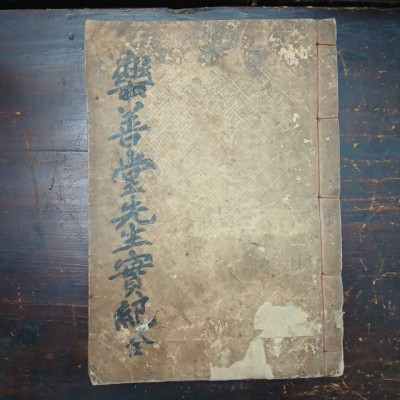 樂善堂先生實紀全